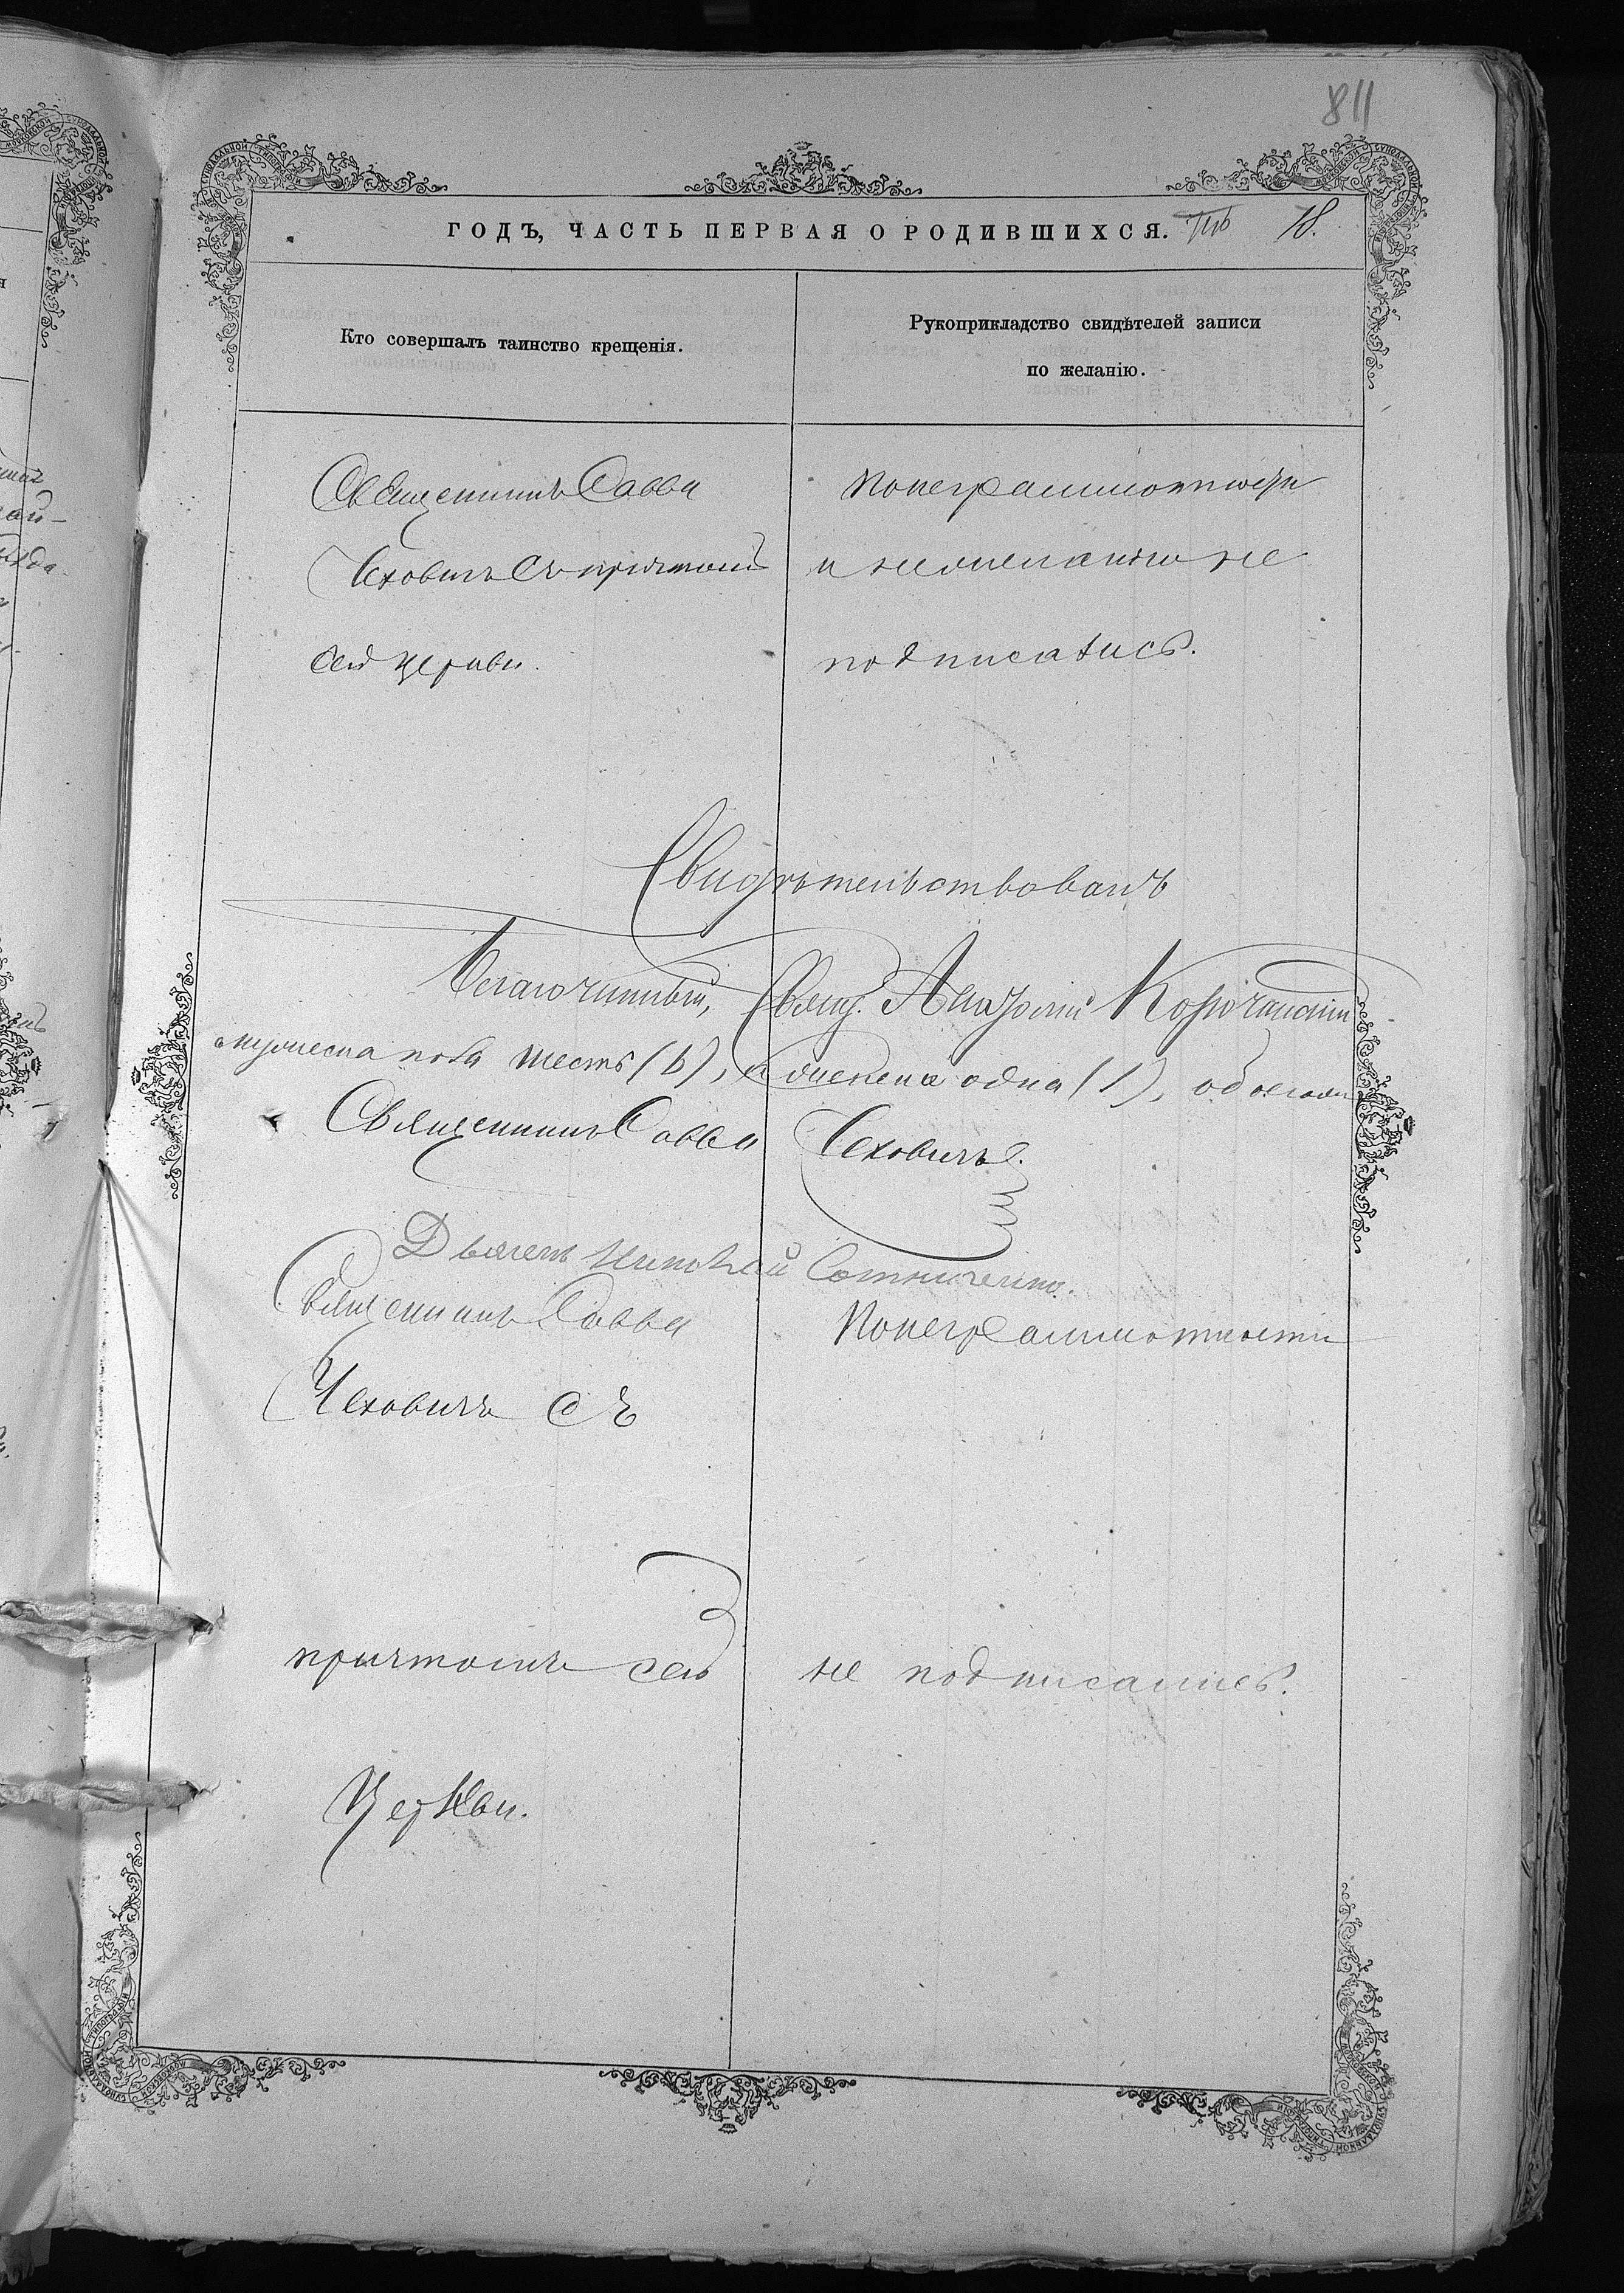 811
ГОДЪ, ЧАСТЬ ПЕРВАЯ О РОДИВШИХСЯ. 18.
Кто совершалъ таинство крещенія.
Рукоприкладство свидѣтелей записи
по желанію.
Священникъ Савва
Чеховичъ съ причтомъ
сей церкви.
По неграммотности
и нежеланію не
подписались.
Свидѣтельствовалъ
Благочинный, Свящ. Корчинскій
мужеска пола шесть (6), женска одна (1), обоего
Священникъ Савва Чеховичъ.
Дьячекъ Николай
Священникъ Савва
Чеховичъ съ
причтомъ сей
Церкви.
По неграммотности
не подписались.